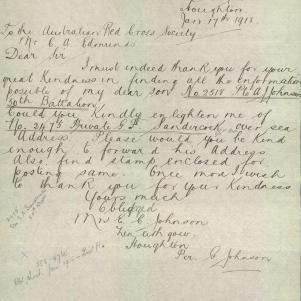 Houghton
Jan 17th 1918.
To the Australian Red Cross Society
Mr C. A. Edmunds
Dear Sir
I must indeed thank you for your
great kindness in finding all the information
possible of my dear son No. 2518 Pte A Johnson
50th Battalion
Could you kindly enlighten me of
No. 2475 Private G Sandercock, over sea
Address. Please would you be kind
enough to forward his Address
Also find stamp enclosed for
posting same. Once more I wish
to thank you for your kindness
Yours much
Obliged
Mrs E. C Johnson
Houghton
Per. C Johnson